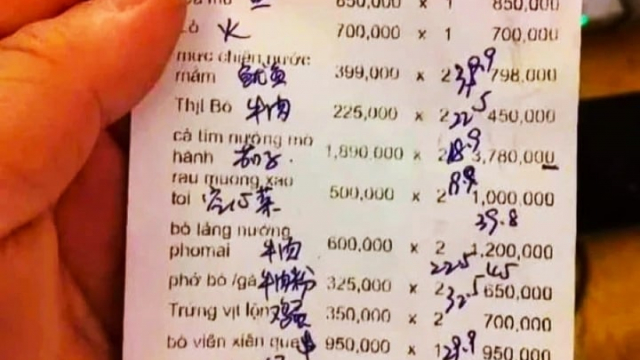 850,000 × 1 850,000
Lò 火 700,000 × 1 700,000
mực chiên nước
mắm 鱿鱼 399,000 × 2 39.9 798,000
Thịt Bò 牛肉 225,000 × 2 22.5 450,000
cà tím nướng mỡ
hành 茄子 1,890,000 × 2 18.9 3,780,000
rau muống xào
tỏi 空心菜 500,000 × 2 1,000,000
39.8
bò lảng nướng
phomai 牛肉 600,000 × 2 1,200,000
22.5 45
phở bò /gà 牛肉粉 325,000 × 2 32.5 650,000
Trứng vịt lộn 鸡蛋 350,000 × 2 700,000
bò viên xiên que 950,000 × 1 29.9 950,000